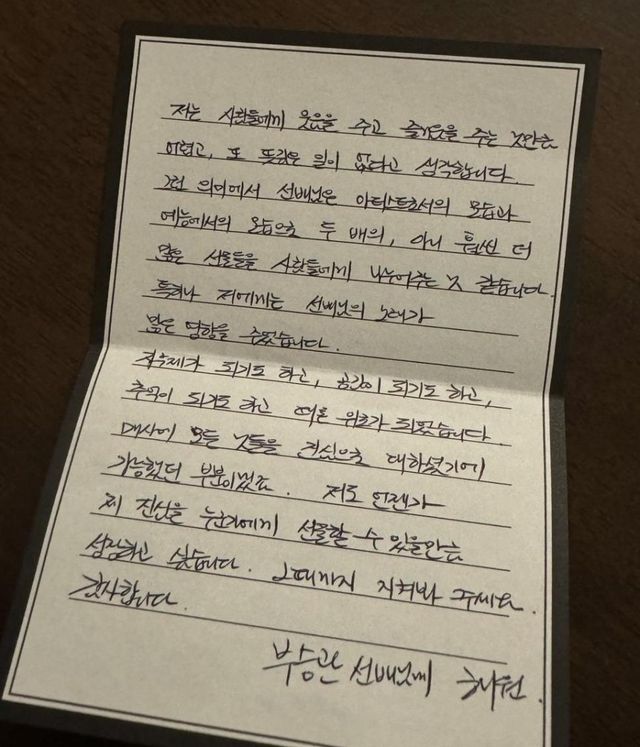 저는 사람들에게 웃음을 주고 즐거움을 주는 것만큼
어렵고, 또 뜻깊은 일이 없다고 생각합니다.
그런 의미에서 선배님은 아티스트로서의 모습과
예능에서의 모습으로 두 배의, 아니 훨씬 더
많은 선물들을 사람들에게 나누어주는 것 같습니다.
특히나 저에게는 선배님의 노래가
많은 영향을 주었습니다.
되기도 하고, 공간이 되기도 하고,
추억이 되기도 하고 때론 위로가 되었습니다.
매사에 모든 것들을 진심으로 대하셨기에
가능했던 부분이겠죠. 저도 언젠가
제 진심을 누군가에게 선물할 수 있을만큼
성장하고 싶습니다. 그때까지 지켜봐 주세요.
감사합니다.
부승관 선배님께